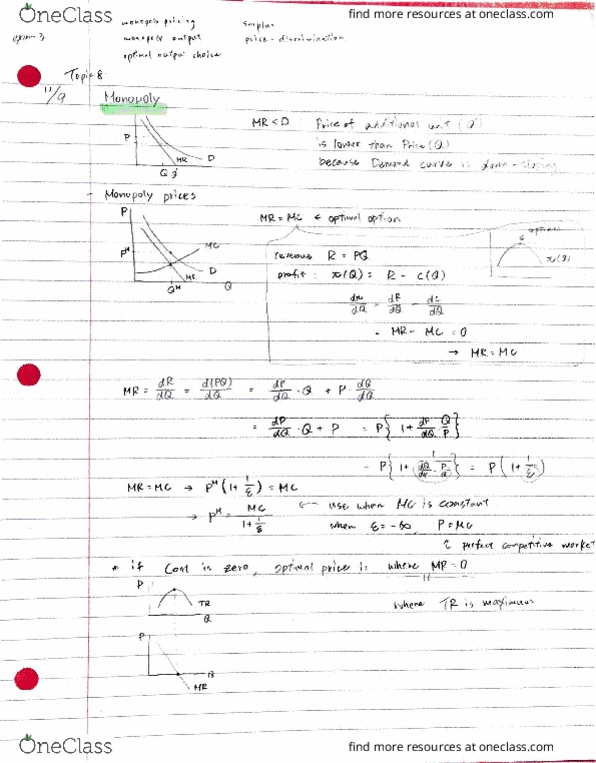 OneClass
find more resources at oneclass.com
exam 3
monopoly pricing
monopoly output
optimal output choice
price-discrimination
Topic 8
11/9
Monopoly
P
P
MR
D
Q
MR < D
Price of additional unit (Q')
is lower than Price (Q)
because Demand curve is down-sloping
- Monopoly prices
P
MC
Pᴹ
D
MR
Qᴹ
Q
MR = MC ← optimal option
revenue R = PQ
profit : π(Q) = R - C(Q)
dπ/dQ = dR/dQ - dC/dQ
= MR - MC = 0
→ MR = MC
optimal
π(Q)
MR = dR/dQ = d(PQ)/dQ = dP/dQ · Q + P · dQ/dQ
= dP/dQ · Q + P = P{1 + dP/dQ · Q/P}
= P{1 + 1/(dQ/dP · P/Q)} = P(1 + 1/ε)
MR = MC → Pᴹ(1 + 1/ε) = MC
→ Pᴹ = MC/(1 + 1/ε) ← use when MC is constant
when ε = -∞, P = MC
perfect competitive market
* if Cost is zero, optimal price is where MR = 0
where TR is maximum
P
TR
Q
P
Q
MR
OneClass
find more resources at oneclass.com